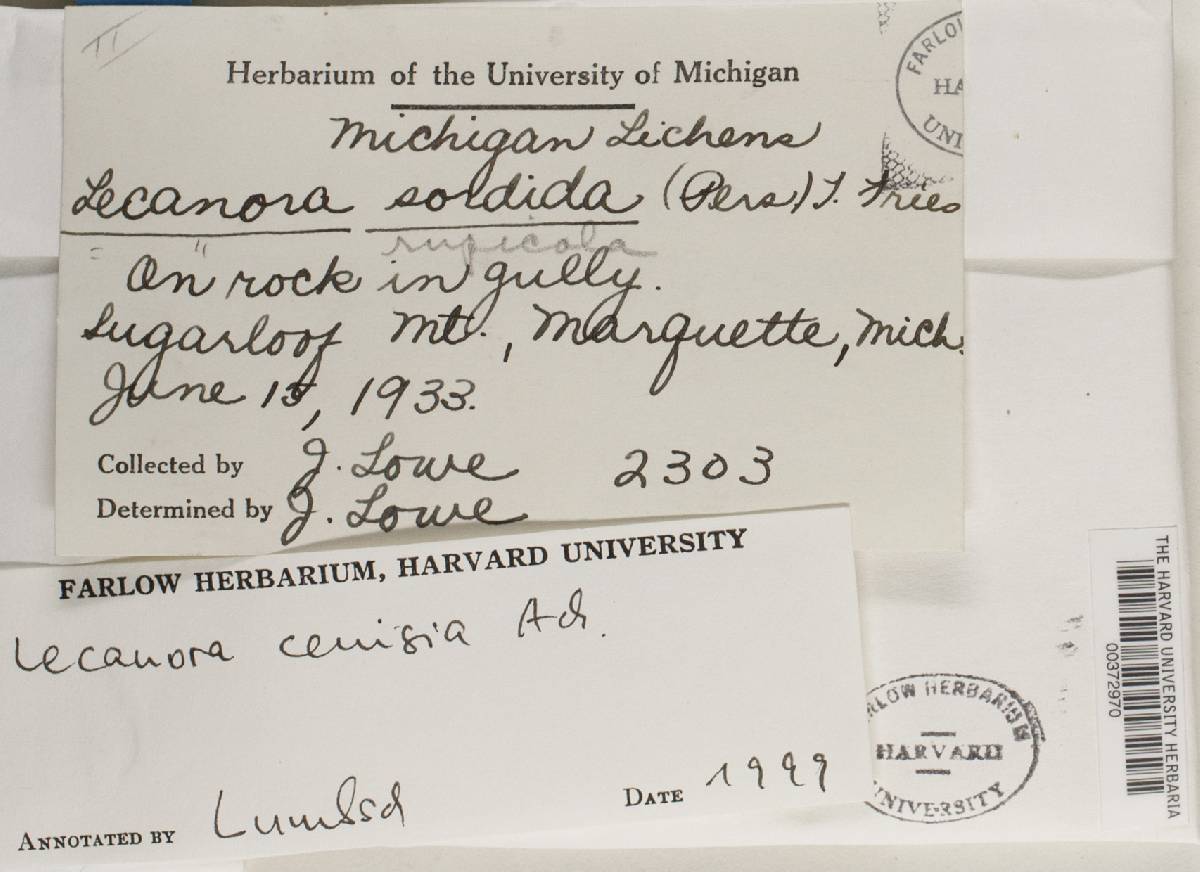 Herbarium of the University of Michigan
Michigan Lichens
Lecanora sordida (Pers) T. Fries
= " rupicola
On rock in gully.
Sugarloof Mt., Marquette, Mich.
June 15, 1933.
Collected by J. Lowe 2303
Determined by J. Lowe
FARLOW
HA
UNI
FARLOW HERBARIUM, HARVARD UNIVERSITY
Lecanora cenisia Ach.
ANNOTATED BY Lumbsch DATE 1999
RLOW HERBARIUM
HARVARD
UNIVERSITY
THE HARVARD UNIVERSITY HERBARIA
00372970